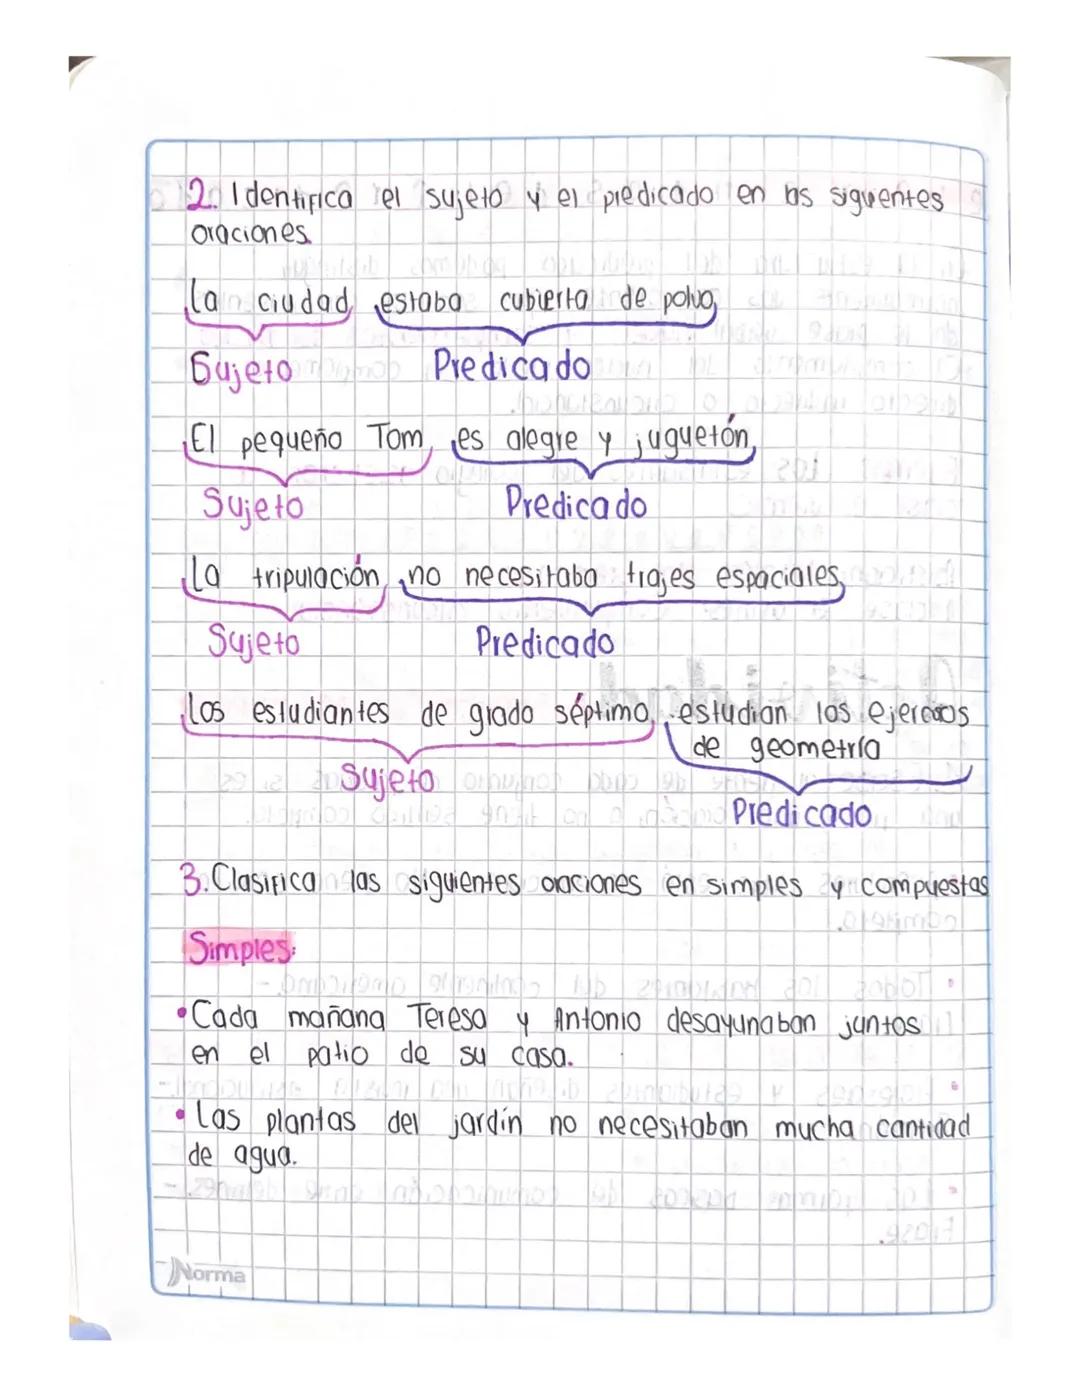 2. Identifica el sujeto y el predicado en las siguientes
oraciones.
La ciudad estaba cubierta de polvo
Sujeto Predicado
El pequeño Tom es alegre y juguetón
Sujeto Predicado
La tripulación no necesitaba trajes espaciales
Sujeto Predicado
Los estudiantes de grado séptimo estudian los ejercicios
de geometría
Sujeto
Predicado
3. Clasifica las siguientes oraciones en simples y compuestas
Simples:
• Cada mañana Teresa y Antonio desayunaban juntos
en el patio de su casa.
• Las plantas del jardín no necesitaban mucha cantidad
de agua.
Norma